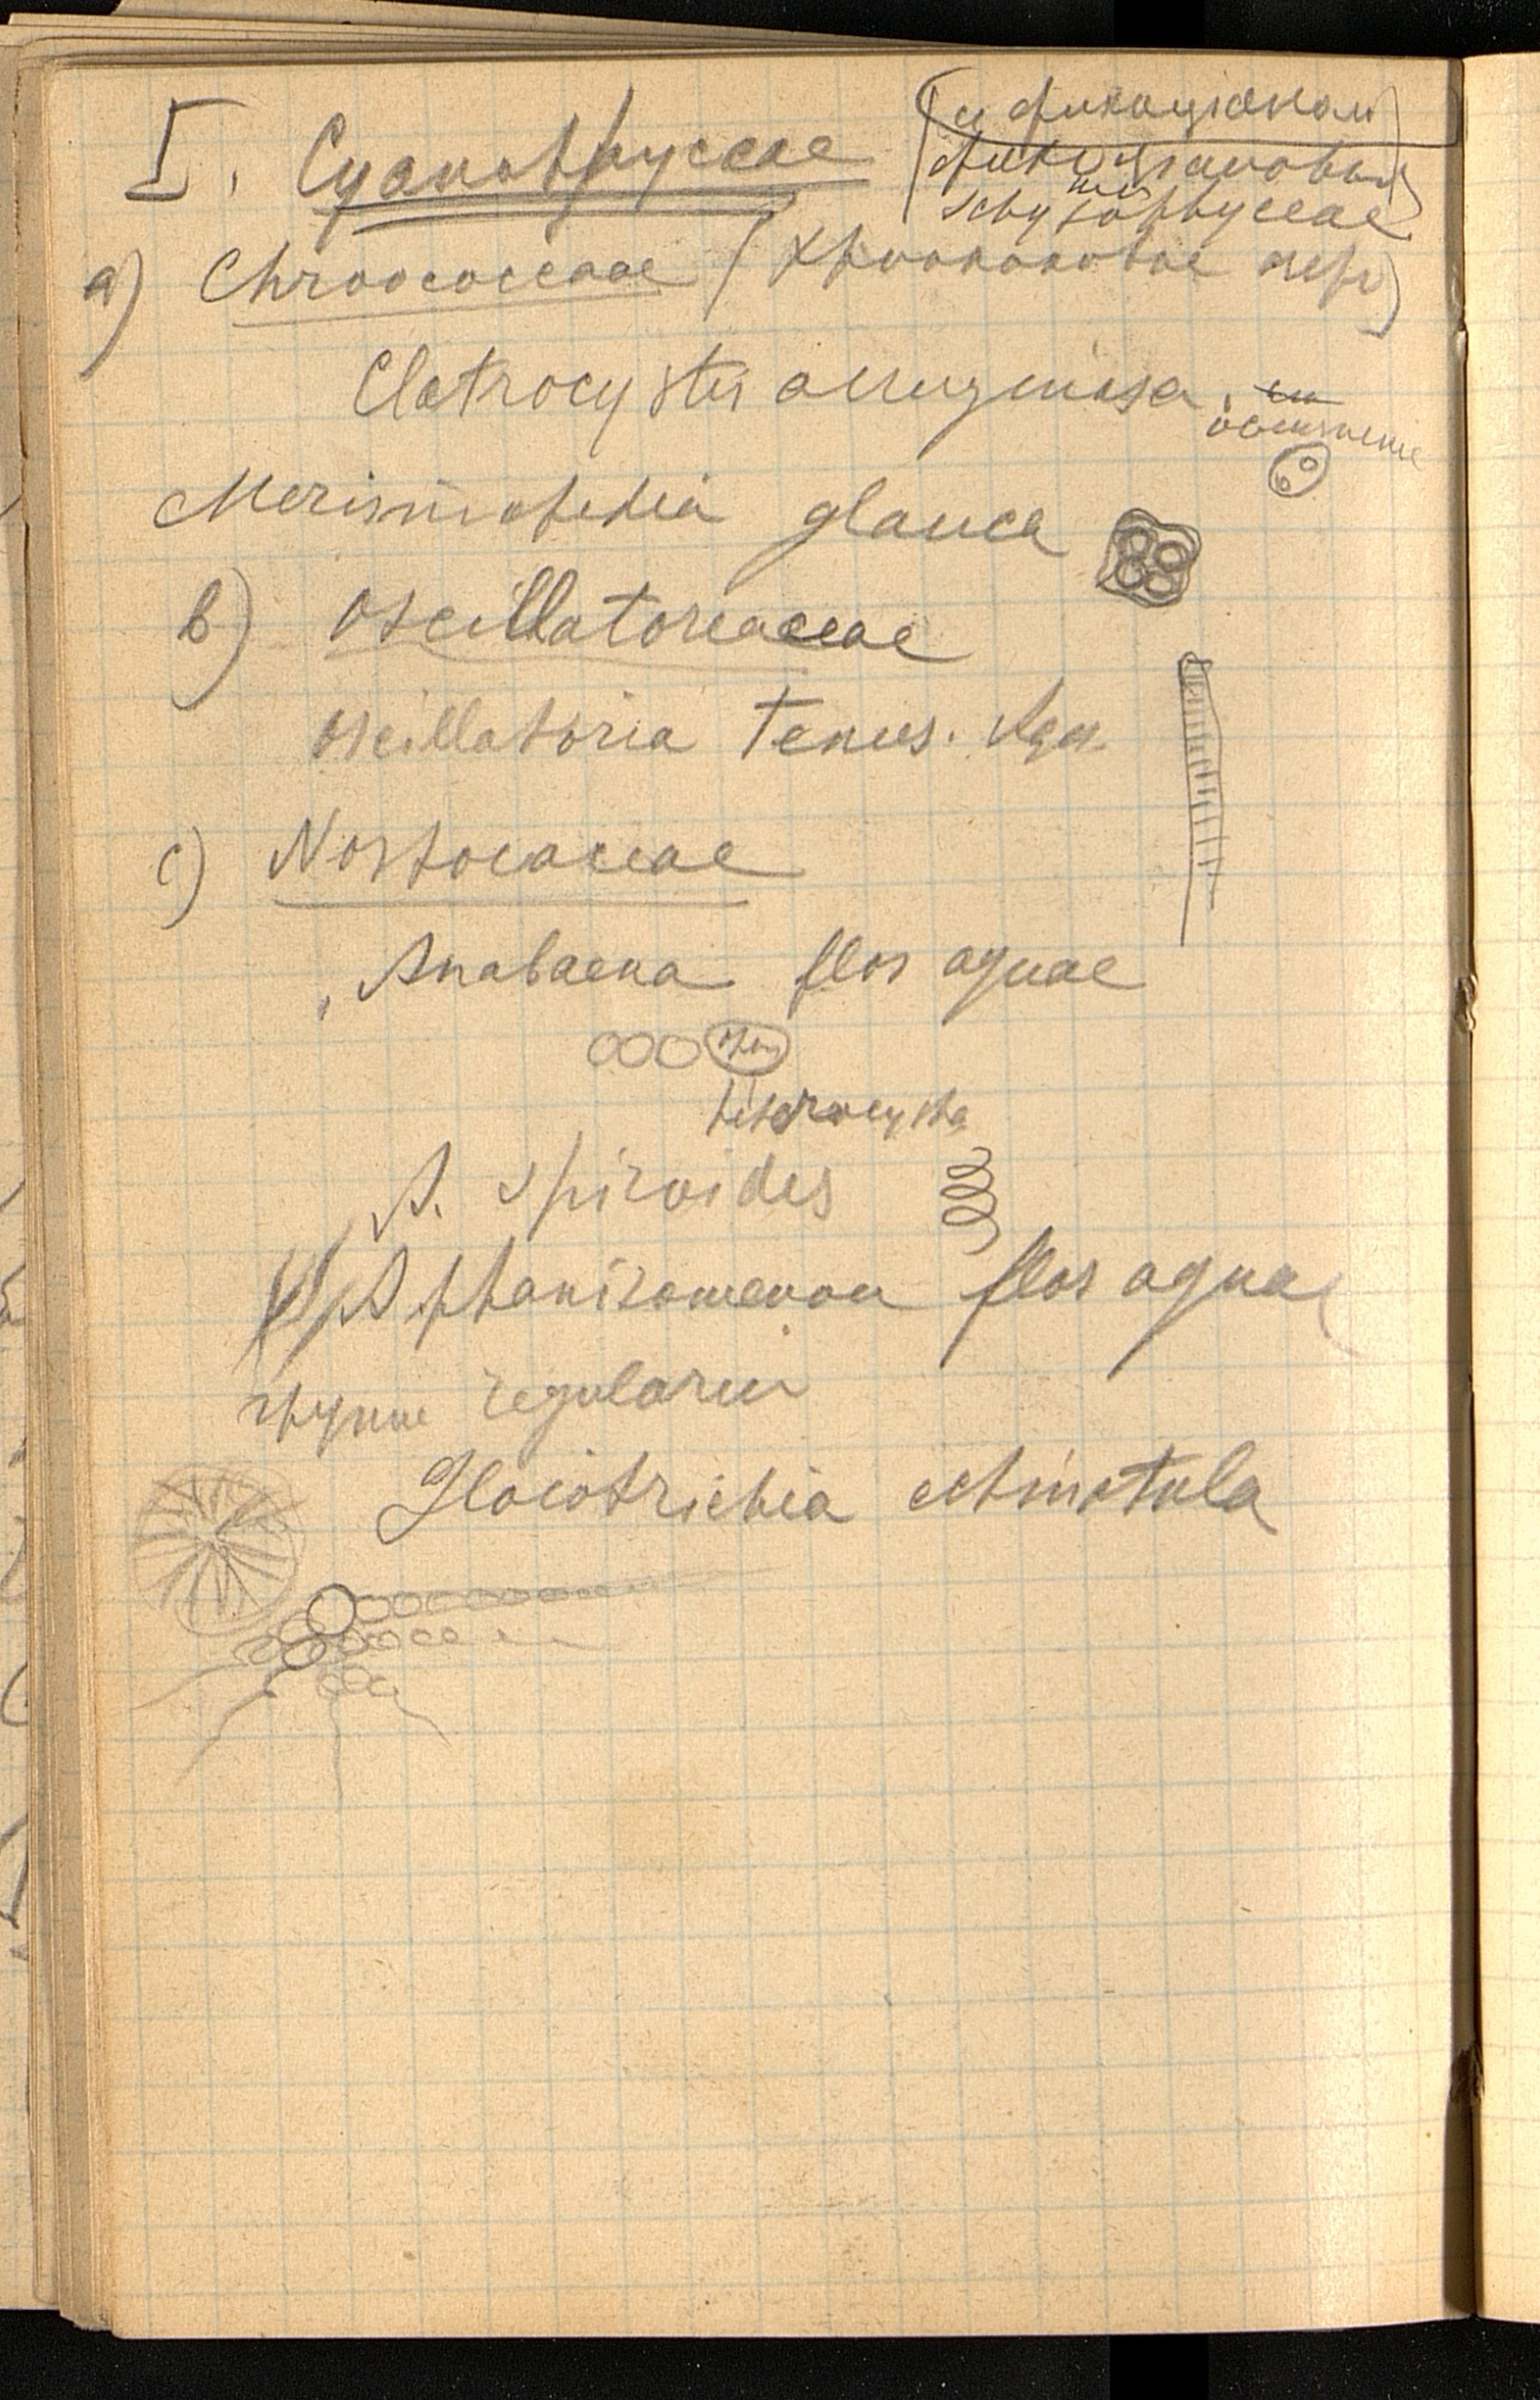 I. Cyanophyceae
(с фикоцiаном
фикоцiановыя
или
Schyzophyceae)
a) Chroococcaceae (Хроококовые
Clatrocystis aeruginosa.
Merismopedia glauca
b) Oscillatoreaceae
Oscillatoria tenues. Agar.
c) Nostocaceae
Anabaena flos aquae
heterocysta
A. spiroides
Aphanizomenon flos aquae
группе regularis
Gloiotrichia echinatula